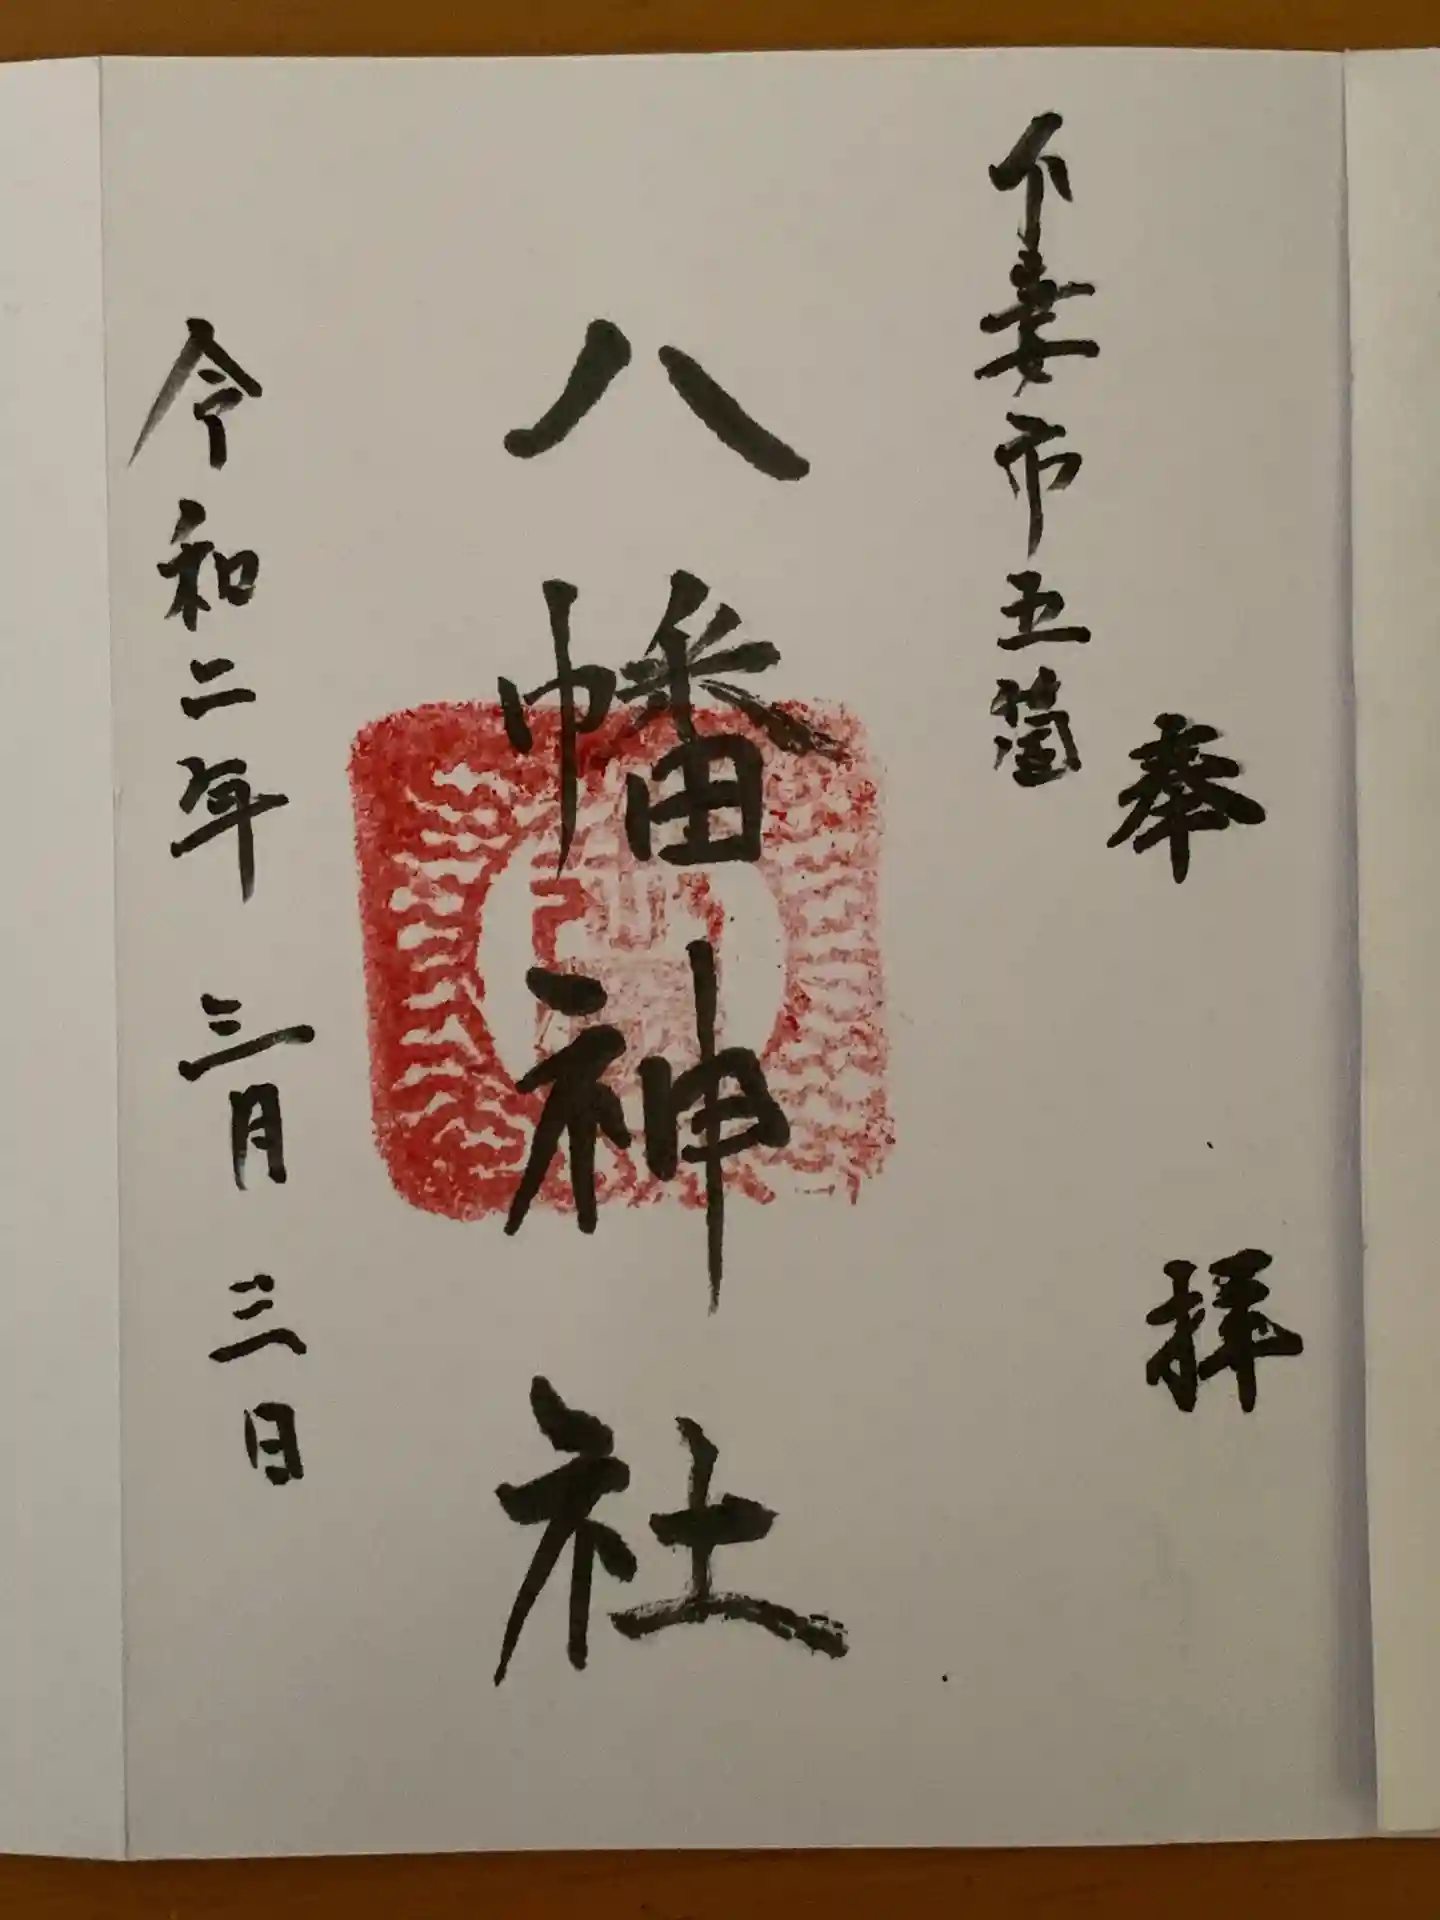 奉拝
下妻市五箇
八幡神社
令和二年三月三日